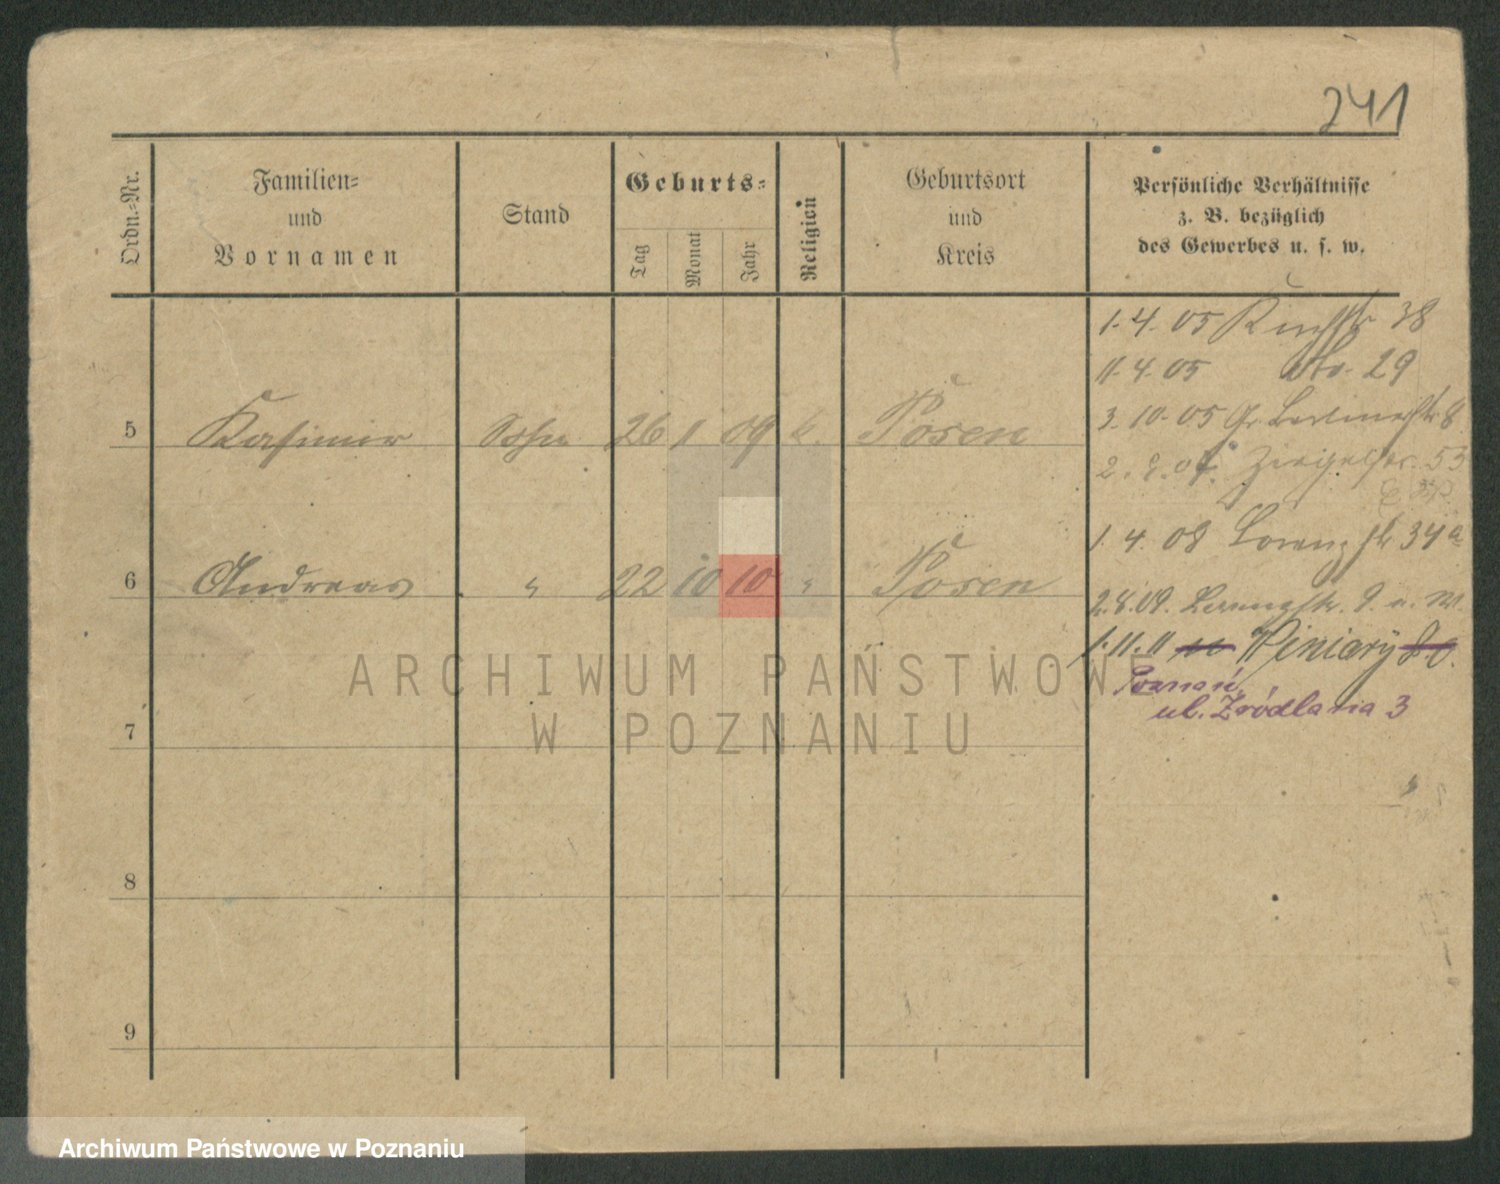 241
Ordn.-Nr.
Familien-
und
Vornamen
Stand
Geburts-
Tag
Monat
Jahr
Religion
Geburtsort
und
Kreis
Persönliche Verhältnisse
z. B. bezüglich
des Gewerbes u. s. w.
1.4.05 38
11.4.05 29
5 Kasimir Sohn 26 1 09 k. Posen
3.10.05 Gr. 8
Ziegelstr. 53
1.4.08 Lorenzstr. 34a
6 Andreas " 22 10 10 " Posen
2.8.09.
1.11.11 Winiary
Poznań,
ul. Źródlana 3
7
8
9
ARCHIWUM PAŃSTWOWE
W POZNANIU
Archiwum Państwowe w Poznaniu